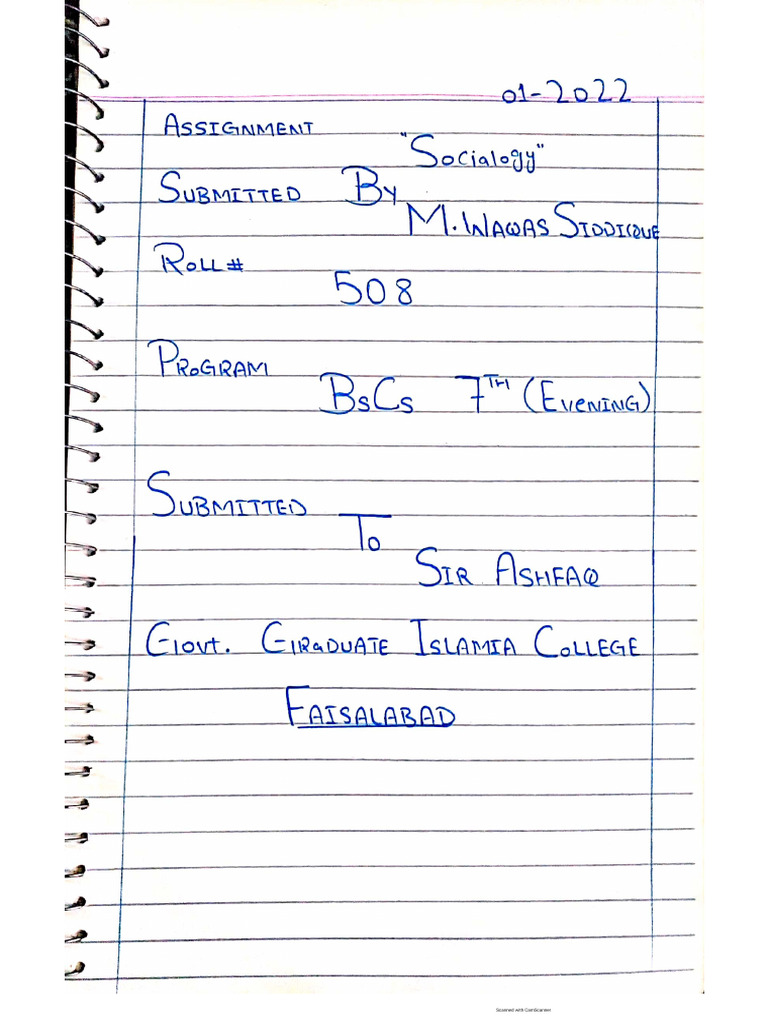 01-2022
ASSIGNMENT
"Socialogy"
SUBMITTED BY
M. WAQAS SIDDIQUE
ROLL#
508
PROGRAM
BsCs 7TH (EVENING)
SUBMITTED
To
SIR ASHFAQ
Govt. GRaDUATE ISLAMIA COLLEGE
FAISALABAD
Scanned with CamScanner